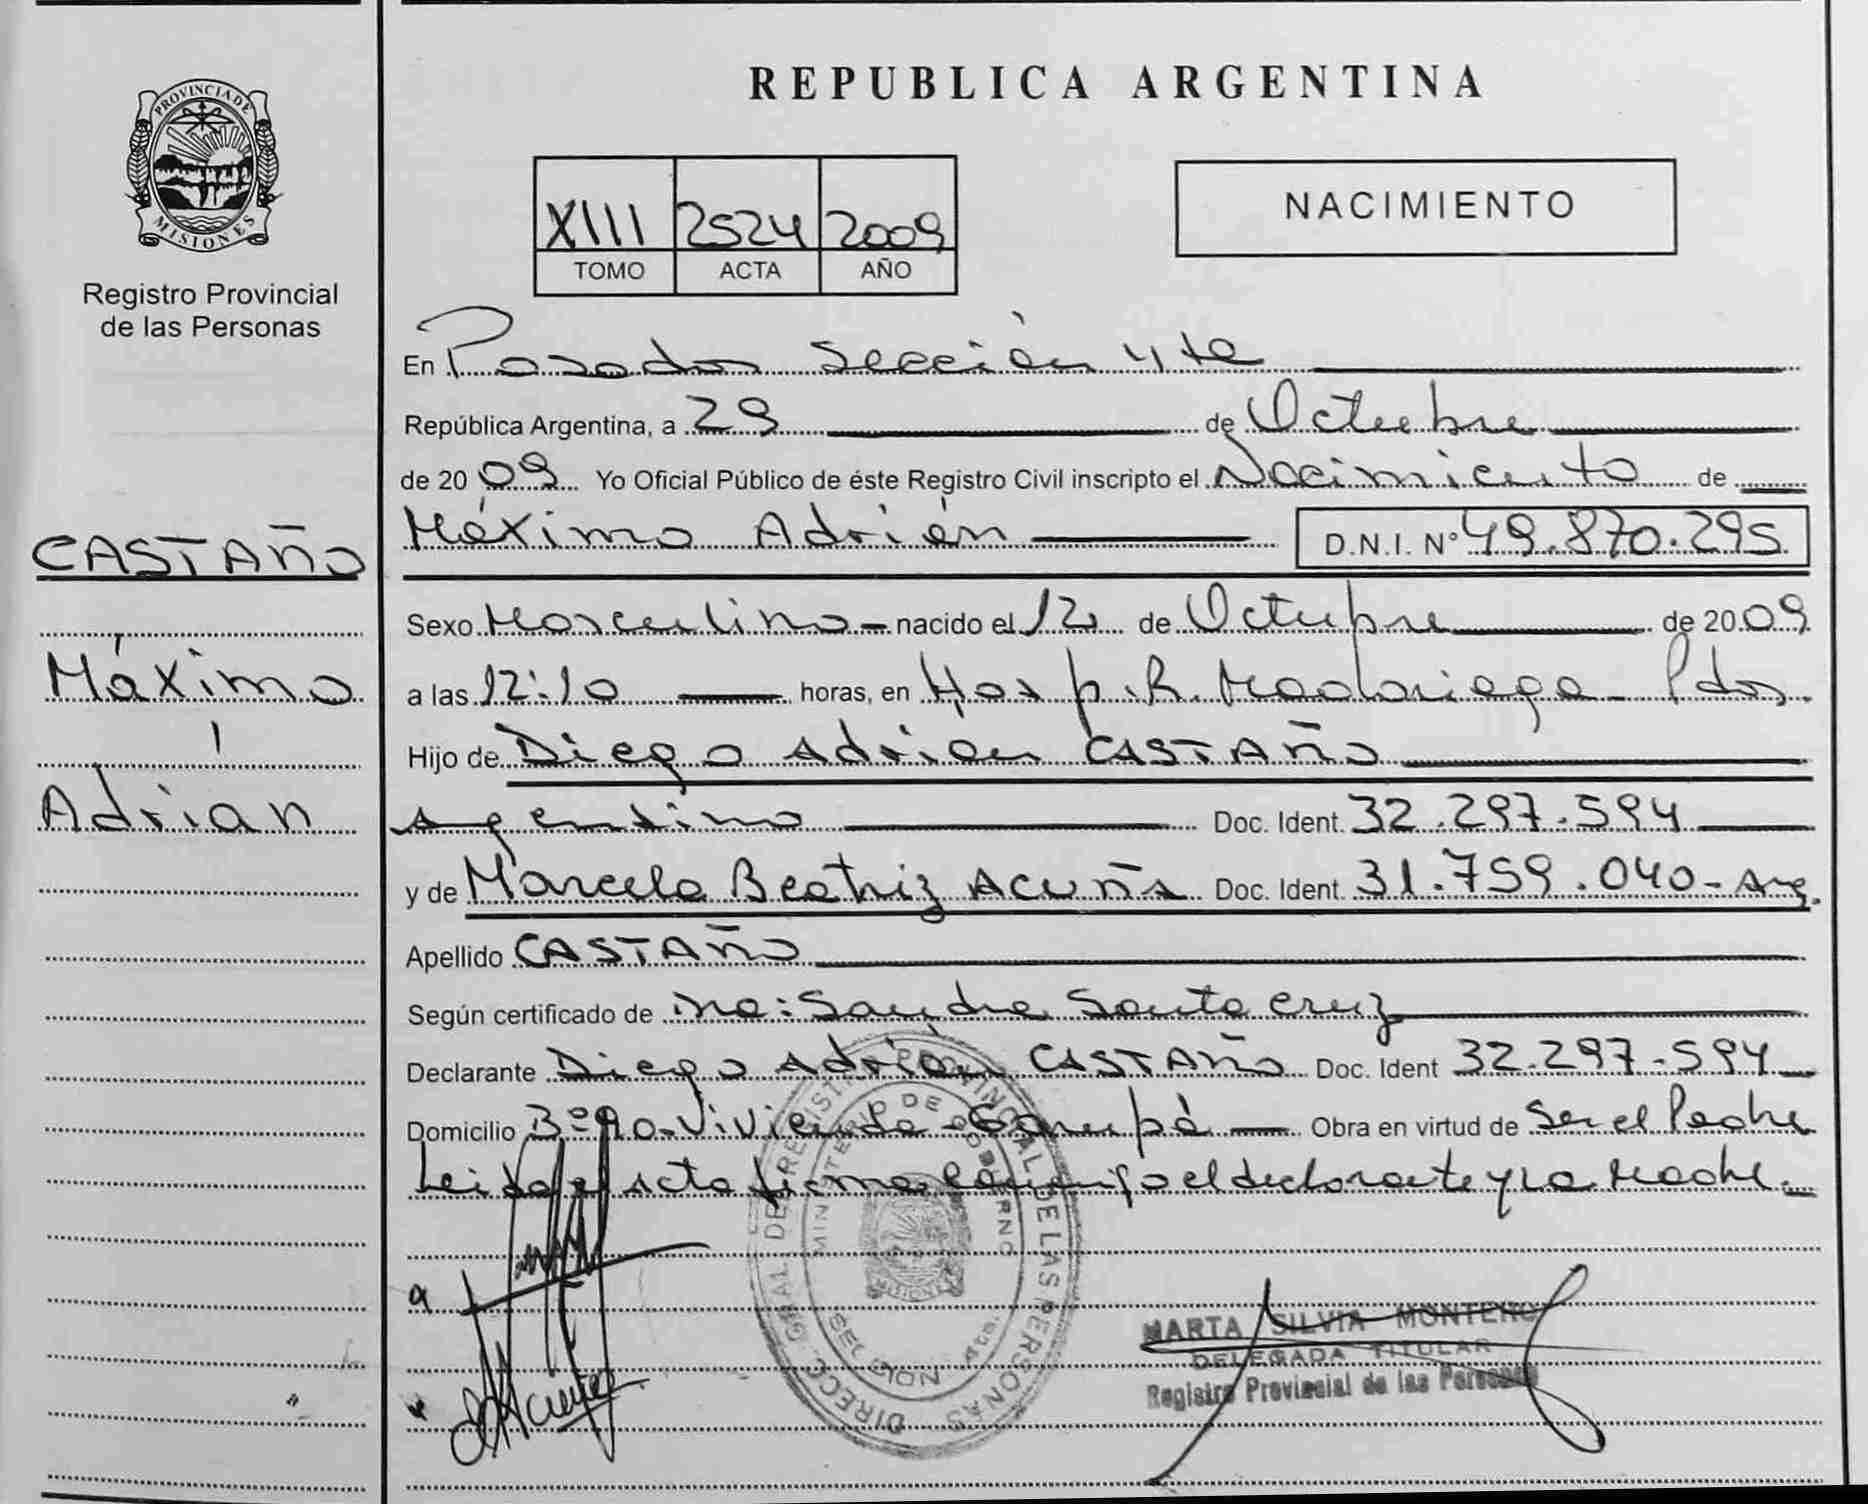 PROVINCIA DE
MISIONES
Registro Provincial
de las Personas
CASTAÑO
Máximo
Adrián
REPUBLICA ARGENTINA
XIII 2524 2009
TOMO ACTA AÑO
NACIMIENTO
En Posadas Sección 4ta
República Argentina, a 29 de Octubre
de 2009 Yo Oficial Público de éste Registro Civil inscripto el Nacimiento de
Máximo Adrián D.N.I. N° 49.870.295
Sexo Masculino - nacido el 12 de Octubre de 2009
a las 12:10 horas, en Hosp. R. Madariaga - Pdas.
Hijo de Diego Adrián CASTAÑO
Argentino Doc. Ident. 32.297.594
y de Marcela Beatriz ACUÑA Doc. Ident. 31.759.040 - Arg.
Apellido CASTAÑO
Según certificado de Sandra Santa Cruz
Declarante Diego Adrián CASTAÑO Doc. Ident 32.297.594
Domicilio Vivienda - Garupá Obra en virtud de Ser el Padre
Leida el Acta firma conmigo el declarante y La Madre.
DIRECC. GRAL DEL REGISTRO PROVINCIAL DE LAS PERSONAS
MINISTERIO DE GOBIERNO
MISIONES
SECCION 4ta.
MARTA SILVIA MONTEIRO
DELEGADA TITULAR
Registro Provincial de las Personas